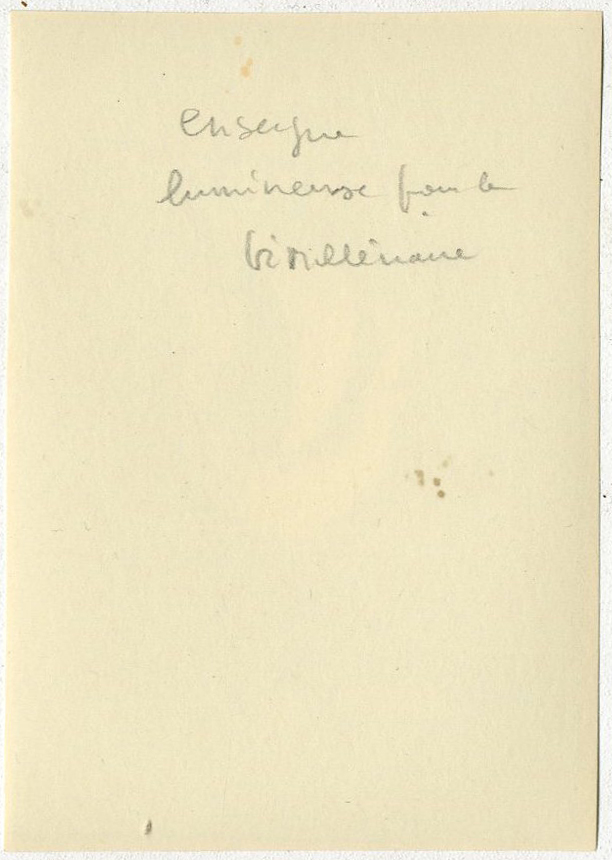 enseigne
lumineuse pour le
bimillénaire